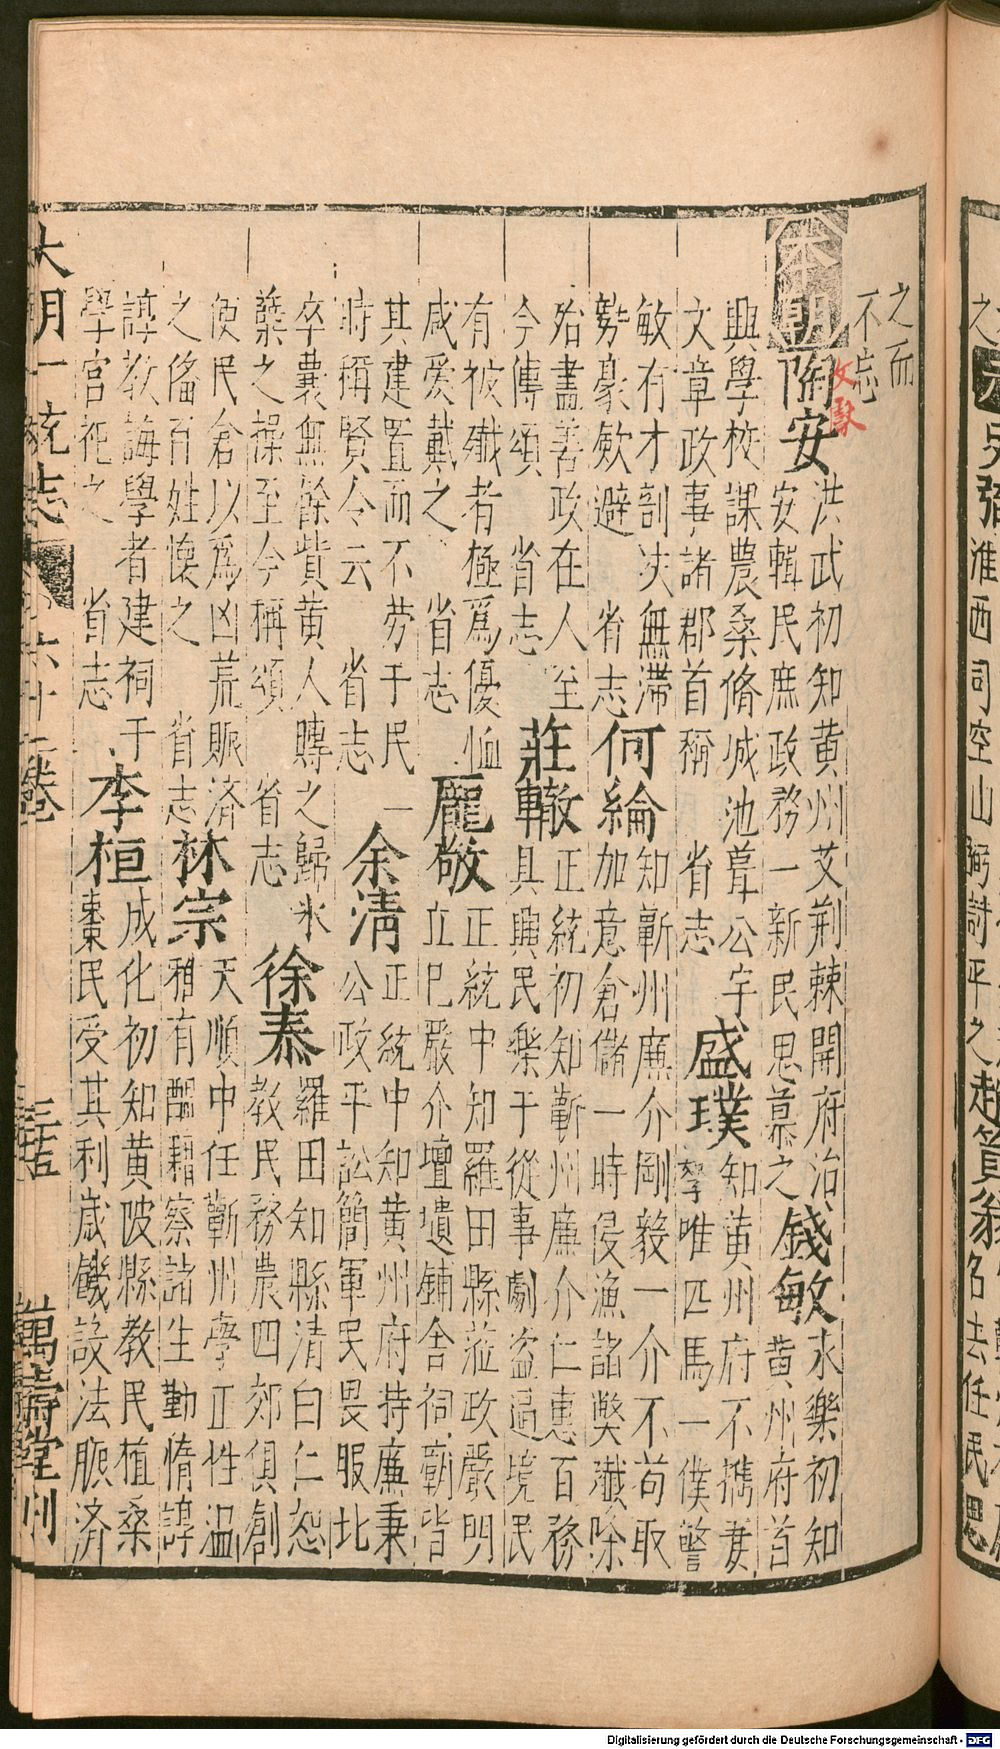 之而
不忘
本朝
陶安
洪武初知黃州艾荊棘開府治
安輯民庶政務一新民思慕之
錢敏
永樂初知
黃州府首
興學校課農桑脩城池葺公宇
文章政事諸郡首稱 省志
盛璞
知黃州府不携妻
孥唯匹馬一僕警
敏有才剖決無滯
勢豪歛避 省志
何綸
知蘄州廉介剛毅一介不苟取
加意倉儲一時侵漁諸弊殲除
殆盡善政在人至
今傳頌 省志
莊轍
正統初知蘄州廉介仁惠百務
具興民樂于從事劇盜逼境民
有被殲者極爲優恤
咸愛戴之 省志
龐敬
正統中知羅田縣蒞政嚴明
立巳嚴介壇壝鋪舍祠廟皆
其建置而不勞于民
時稱賢令云 省志
余清
正統中知黃州府持廉秉
公政平訟簡軍民畏服北
卒囊無餘貲黃人賻之歸氷
蘗之操至今稱頌 省志
徐泰
羅田知縣清白仁恕
教民務農四郊俱創
便民倉以爲凶荒賑済
之俻百姓懷之 省志
林宗
天順中任蘄州學正性溫
雅有醞藉察諸生勤惰諄
諄教誨學者建祠于
學宮祀之 省志
李桓
成化初知黃陂縣教民植桑
棗民受其利歲饑設法賑済
大明一統志 六十一卷 三十五 萬壽堂刊
Digitalisierung gefördert durch die Deutsche Forschungsgemeinschaft - DFG